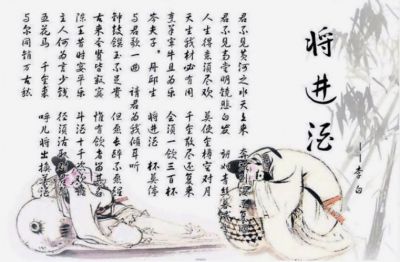 将进酒
——李白
君不见黄河之水天上来 奔流到海不复回
君不见高堂明镜悲白发 朝如青丝暮成雪
人生得意须尽欢 莫使金樽空对月
天生我材必有用 千金散尽还复来
烹羊宰牛且为乐 会须一饮三百杯
岑夫子 丹邱生 将进酒 杯莫停
与君歌一曲 请君为我倾耳听
钟鼓馔玉不足贵 但愿长醉不愿醒
古来圣贤皆寂寞 惟有饮者留其名
陈王昔时宴平乐 斗酒十千恣欢谑
主人何为言少钱 径须沽取对君酌
五花马 千金裘 呼儿将出换美酒
与尔同销万古愁